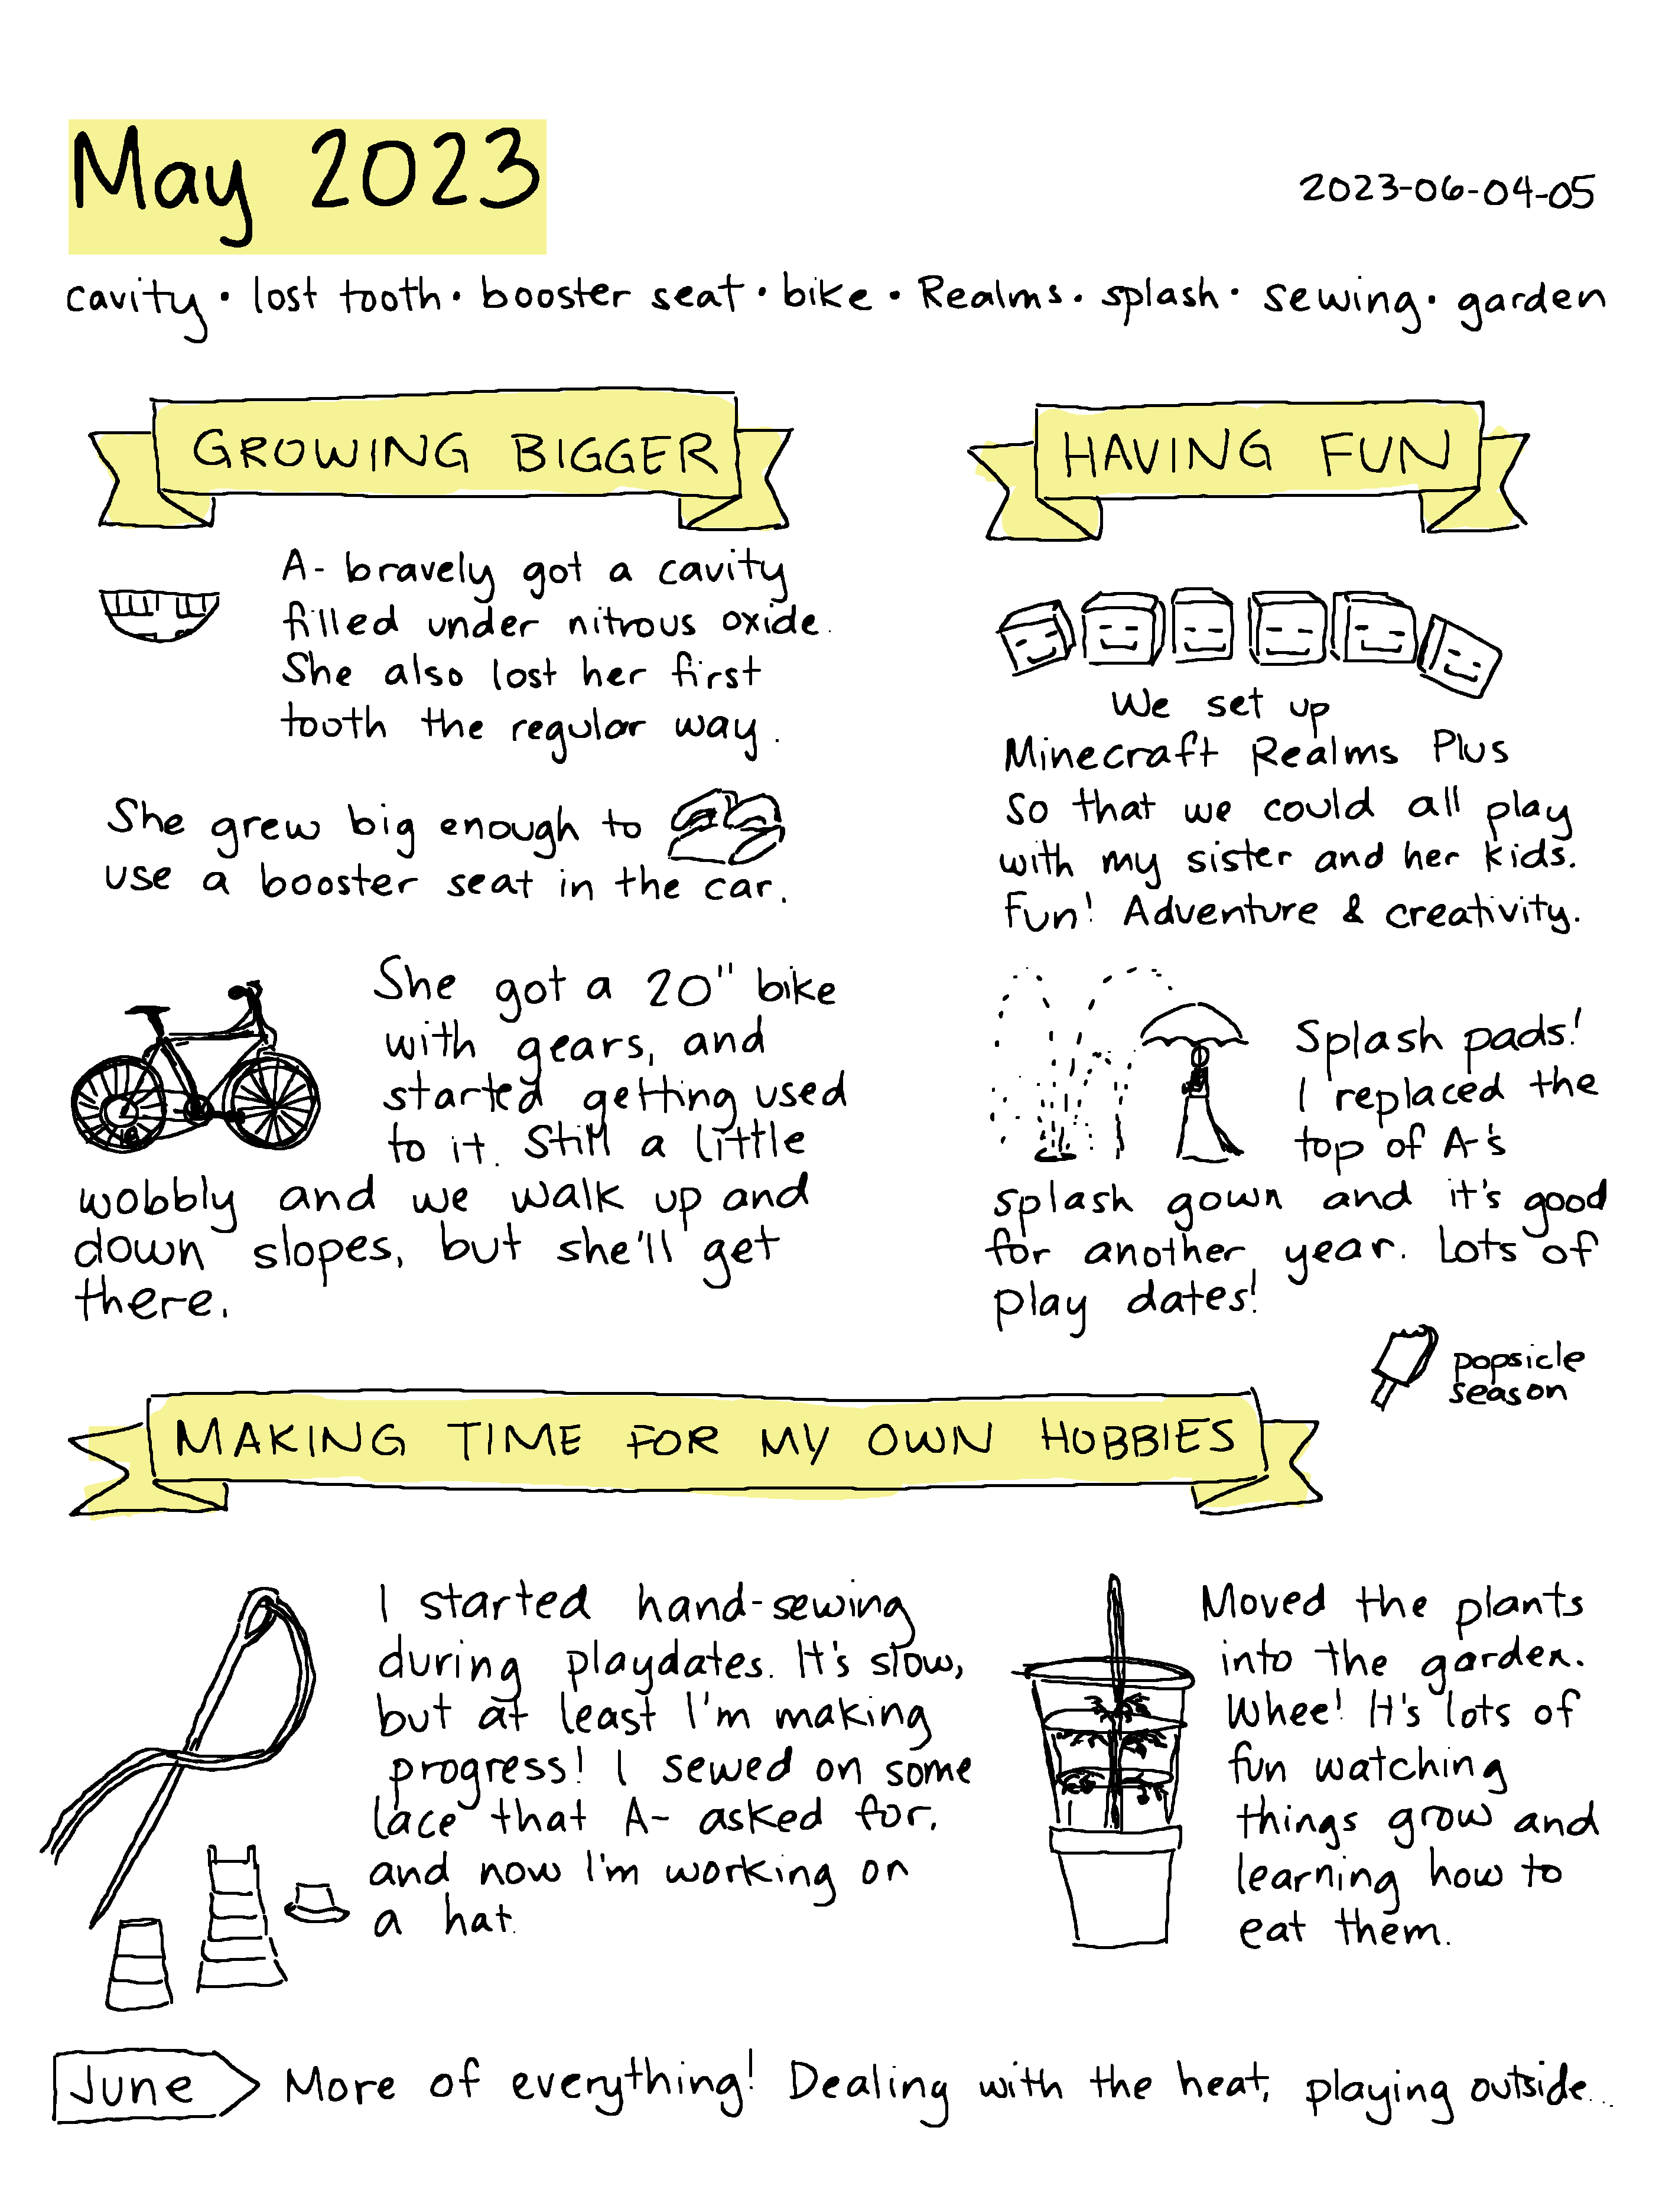 May 2023
2023-06-04-05
cavity • lost tooth • booster seat • bike • Realms • splash • sewing • garden
GROWING BIGGER
A- bravely got a cavity
filled under nitrous oxide.
She also lost her first
tooth the regular way.
She grew big enough to
use a booster seat in the car.
She got a 20" bike
with gears, and
started getting used
to it. Still a little
wobbly and we walk up and
down slopes, but she'll get
there.
HAVING FUN
We set up
Minecraft Realms Plus
so that we could all play
with my sister and her kids.
Fun! Adventure & creativity.
Splash pads!
I replaced the
top of A-'s
splash gown and it's good
for another year. Lots of
play dates!
popsicle
season
MAKING TIME FOR MY OWN HOBBIES
I started hand-sewing
during playdates. It's slow,
but at least I'm making
progress! I sewed on some
lace that A- asked for,
and now I'm working on
a hat.
Moved the plants
into the garden.
Whee! It's lots of
fun watching
things grow and
learning how to
eat them.
June
More of everything! Dealing with the heat, playing outside...